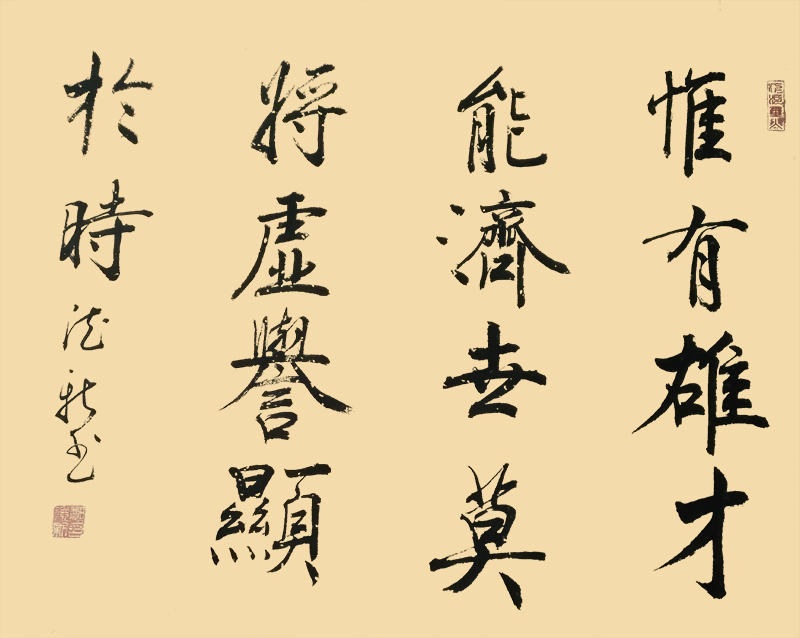 惟有雄才
能濟世莫
將虛譽顯
於時